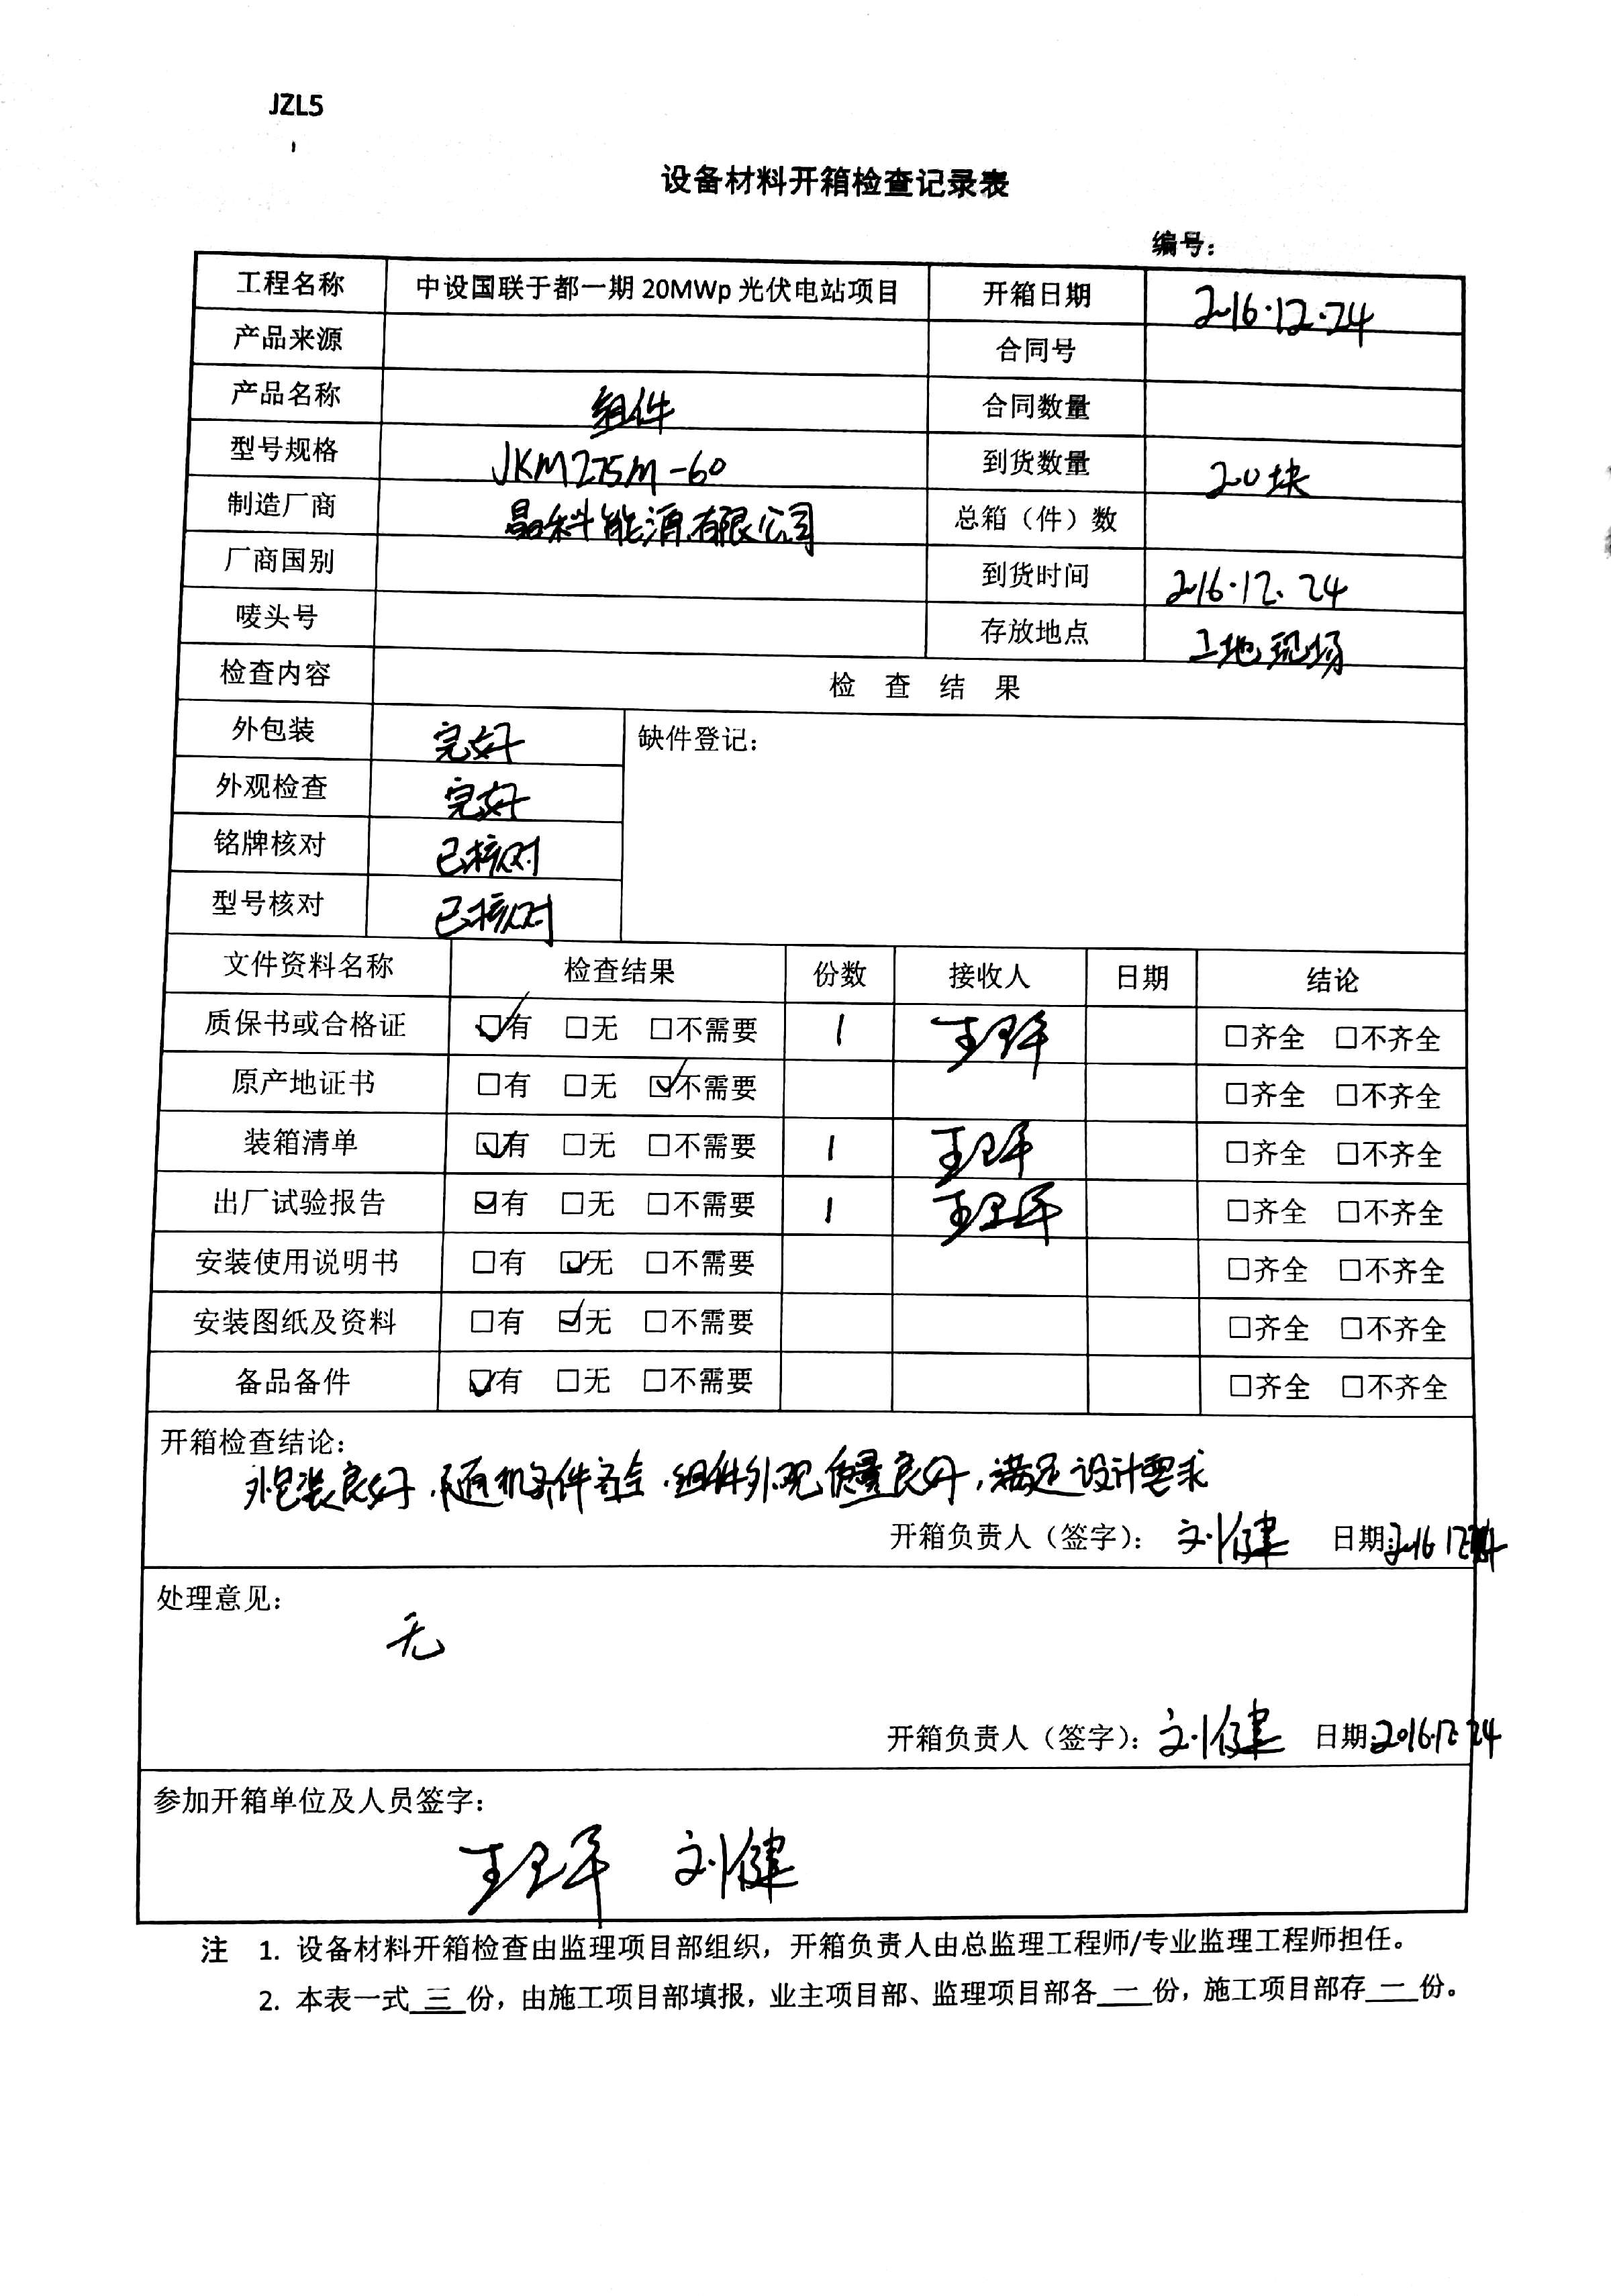 JZL5
设备材料开箱检查记录表
编号：
工程名称 中设国联于都一期 20MWp 光伏电站项目 开箱日期 2016.12.24
产品来源 合同号
产品名称 组件 合同数量
型号规格 JKM275M-60 到货数量 20块
制造厂商 晶科能源有限公司 总箱（件）数
厂商国别 到货时间 2016.12.24
唛头号 存放地点 工地现场
检查内容 检 查 结 果
外包装 完好 缺件登记：
外观检查 完好
铭牌核对 已核对
型号核对 已核对
文件资料名称 检查结果 份数 接收人 日期 结论
质保书或合格证 ☑有 □无 □不需要 1 □齐全 □不齐全
原产地证书 □有 □无 ☑不需要 □齐全 □不齐全
装箱清单 ☑有 □无 □不需要 1 □齐全 □不齐全
出厂试验报告 ☑有 □无 □不需要 1 □齐全 □不齐全
安装使用说明书 □有 ☑无 □不需要 □齐全 □不齐全
安装图纸及资料 □有 ☑无 □不需要 □齐全 □不齐全
备品备件 ☑有 □无 □不需要 □齐全 □不齐全
开箱检查结论：
外包装良好，随机文件齐全，组件外观质量良好，满足设计要求
开箱负责人（签字）： 刘健 日期：2016.12.24
处理意见：
无
开箱负责人（签字）： 刘健 日期：2016.12.24
参加开箱单位及人员签字：
刘健
注 1. 设备材料开箱检查由监理项目部组织，开箱负责人由总监理工程师/专业监理工程师担任。
2. 本表一式 三 份，由施工项目部填报，业主项目部、监理项目部各 一 份，施工项目部存 一 份。